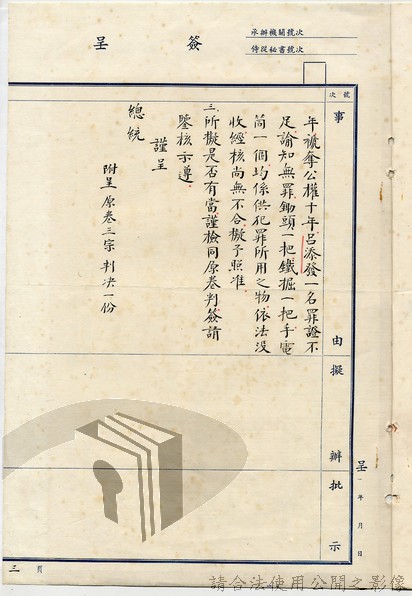 簽呈
承辦機關號次
侍從秘書號次
號次
事由
擬辦
批示
呈 年 月 日
年褫奪公權十年呂添發一名罪證不
足諭知無罪鋤頭一把鐵掘一把手電
筒一個均係供犯罪所用之物依法沒
收經核尚無不合擬予照准
三所擬是否有當謹檢同原卷判簽請
鑒核示遵
謹呈
總統
附呈原卷三宗判決一份
三頁
請合法使用公開之影像